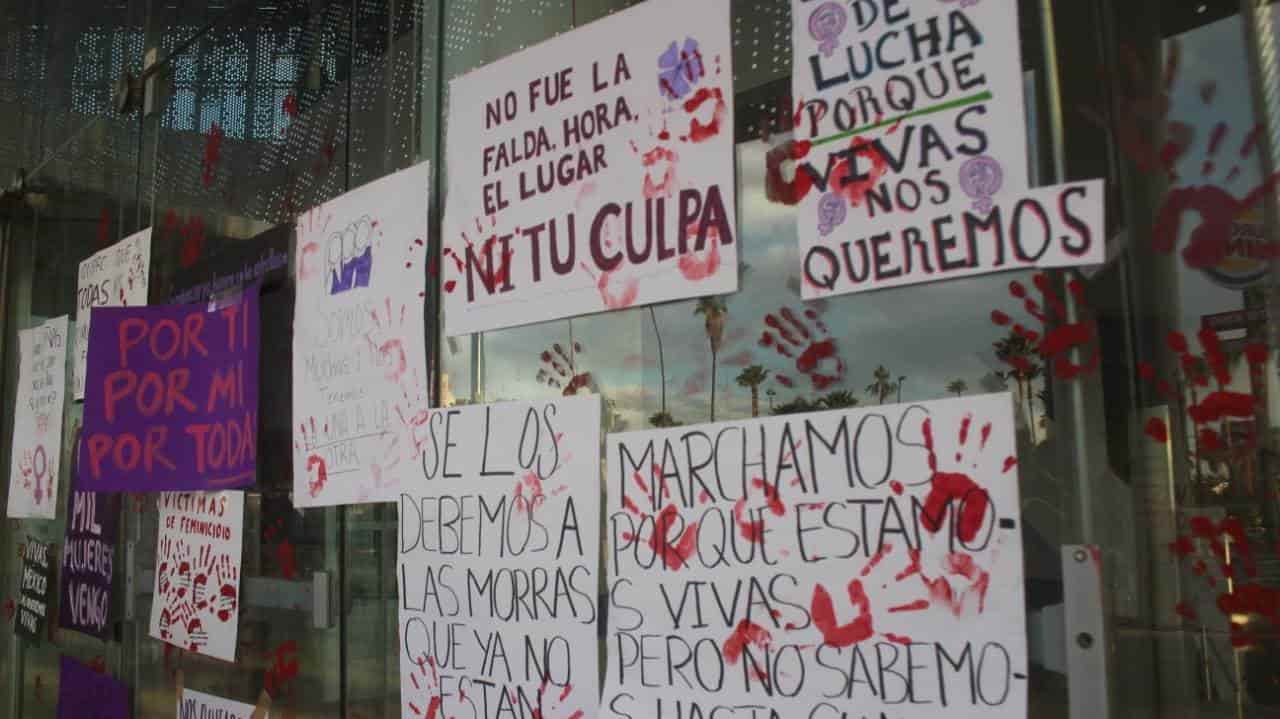 NO FUE LA
FALDA, HORA,
EL LUGAR
NI TU CULPA
DE
LUCHA
PORQUE
VIVAS
NOS
QUEREMOS
TODAS
POR TI
POR MI
POR TODA
SOMOS
MUCHAS Y
Tenemos
LA UNA A LA
OTRA
SE LOS
DEBEMOS A
LAS MORRAS
QUE YA NO
ESTAN
MARCHAMOS
PORQUE ESTAMO-
S VIVAS
PERO NO SABEMO-
S HASTA
MIL
MUJERES
VENGO
VICTIMAS
DE FEMINICIDIO
VIVAS
MÉXICO
VIVAS